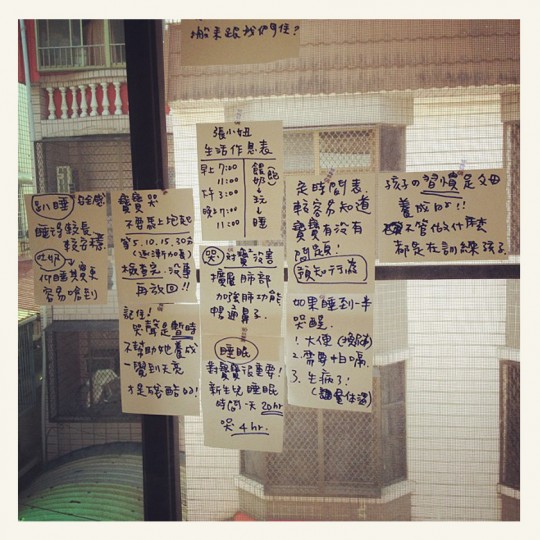 搬來跟我們住?
張小妞
生活作息表
早上 7:00
11:00
下午 3:00
晚上 7:00
11:00
餵奶(飽)
↓
玩
↓
睡
趴睡 安全感
睡得較長
較安穩
吐奶
仰睡其實更
容易嗆到
寶寶哭
不要馬上抱起
等5.10.15.30分
(逐漸加長)
檢查完 沒事
再放回!!
記住!
哭聲是暫時
不幫助她養成
一覺到天亮
才是殘酷的!
哭 對寶寶沒害
擴展肺部
加強肺功能
暢通鼻子.
睡眠
對寶寶很重要!
新生兒睡眠
時間一天20hr
哭4hr.
定時間表.
較容易知道
寶寶有沒有
問題!
預知行為
如果睡到一半
哭醒.
1. 大便(換尿布)
2. 需要拍嗝.
3. 生病了!
(測量体溫)
孩子の習慣是父母
養成的!!
不管做什麼
都是在訓練孩子